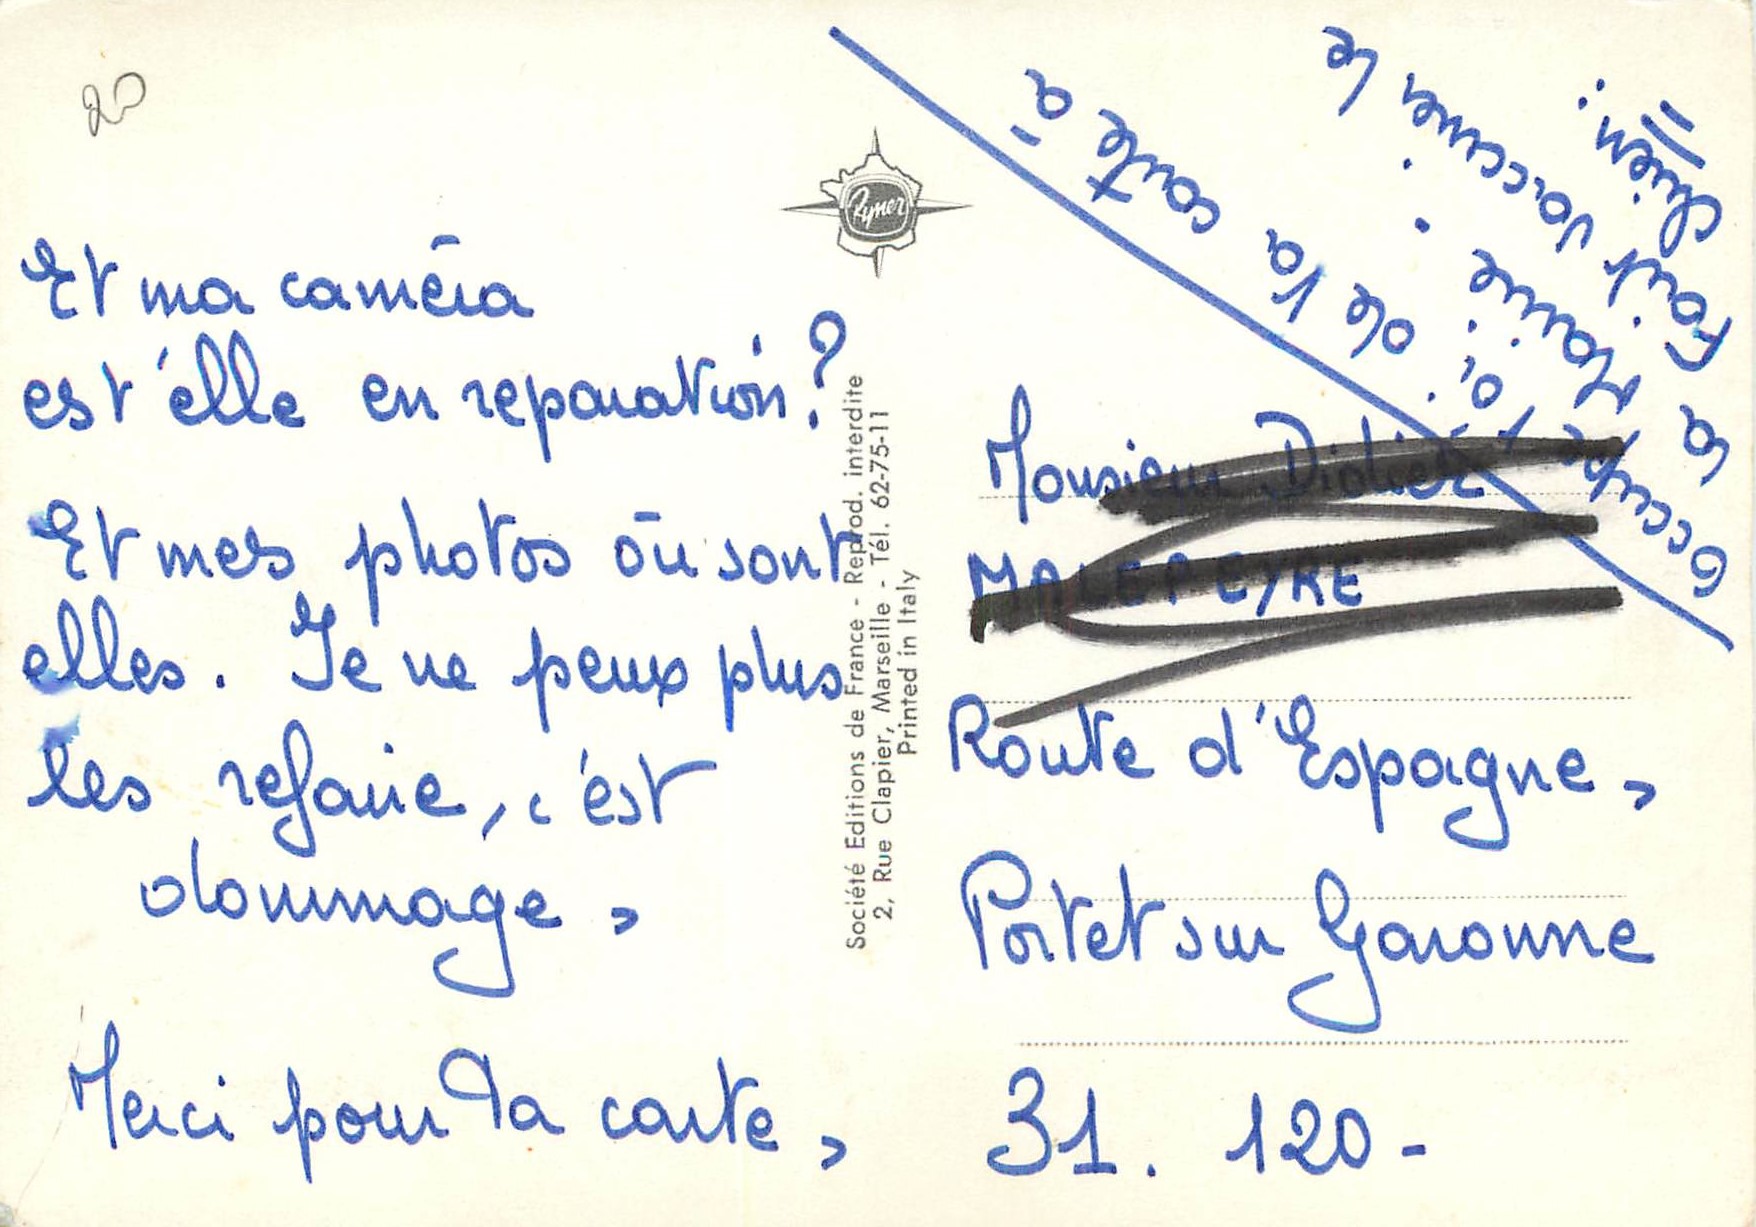 20
Et ma caméra
est'elle en reparation?
Et mes photos où sont
elles. Je ne peux plus
les refaire, c'est
dommage,
Merci pour la carte,
Ryner
Société Editions de France - Reprod. interdite
2, Rue Clapier, Marseille - Tél. 62-75-11
Printed in Italy
Occupe t'oi, de la carte à
la Mairie.
Fait vacciner le
chien.
Monsieur Didier
Route d'Espagne,
Portet sur Garonne
31. 120-